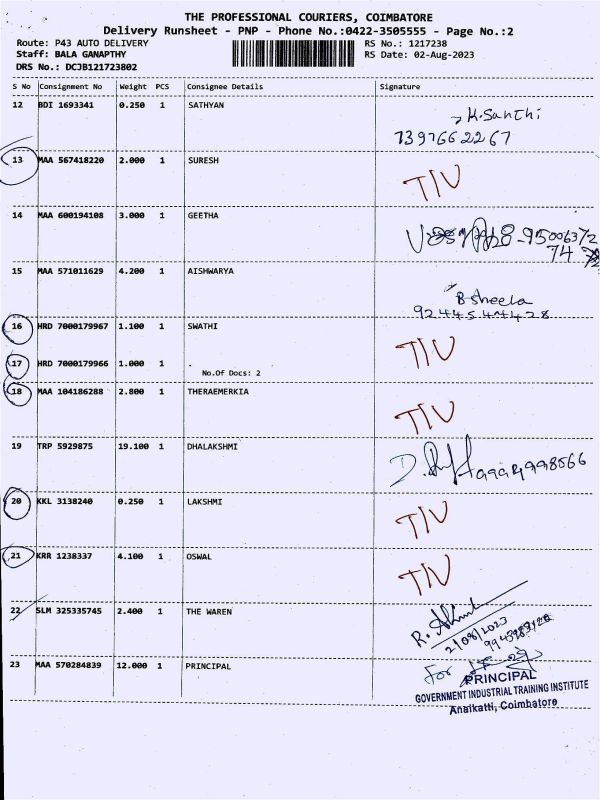 THE PROFESSIONAL COURIERS, COIMBATORE
Delivery Runsheet - PNP - Phone No.:0422-3505555 - Page No.:2
Route: P43 AUTO DELIVERY RS No.: 1217238
Staff: BALA GANAPTHY RS Date: 02-Aug-2023
DRS No.: DCJB121723802
S No Consignment No Weight PCS Consignee Details Signature
12 BDI 1693341 0.250 1 SATHYAN
K.Santhi
7397662267
13 MAA 567418220 2.000 1 SURESH
TIV
14 MAA 600194108 3.000 1 GEETHA
15 MAA 571011629 4.200 1 AISHWARYA
B Sheela
9244544428
16 HRD 7000179967 1.100 1 SWATHI
TIV
17 HRD 7000179966 1.000 1 .
No.Of Docs: 2
18 MAA 104186288 2.800 1 THERAEMERKIA
TIV
19 TRP 5929875 19.100 1 DHALAKSHMI
20 KKL 3138240 0.250 1 LAKSHMI
TIV
21 KRR 1238337 4.100 1 OSWAL
TIV
22 SLM 325335745 2.400 1 THE WAREN
2/08/2023
23 MAA 570284839 12.000 1 PRINCIPAL
For
PRINCIPAL
GOVERNMENT INDUSTRIAL TRAINING INSTITUTE
Anaikatti, Coimbatore